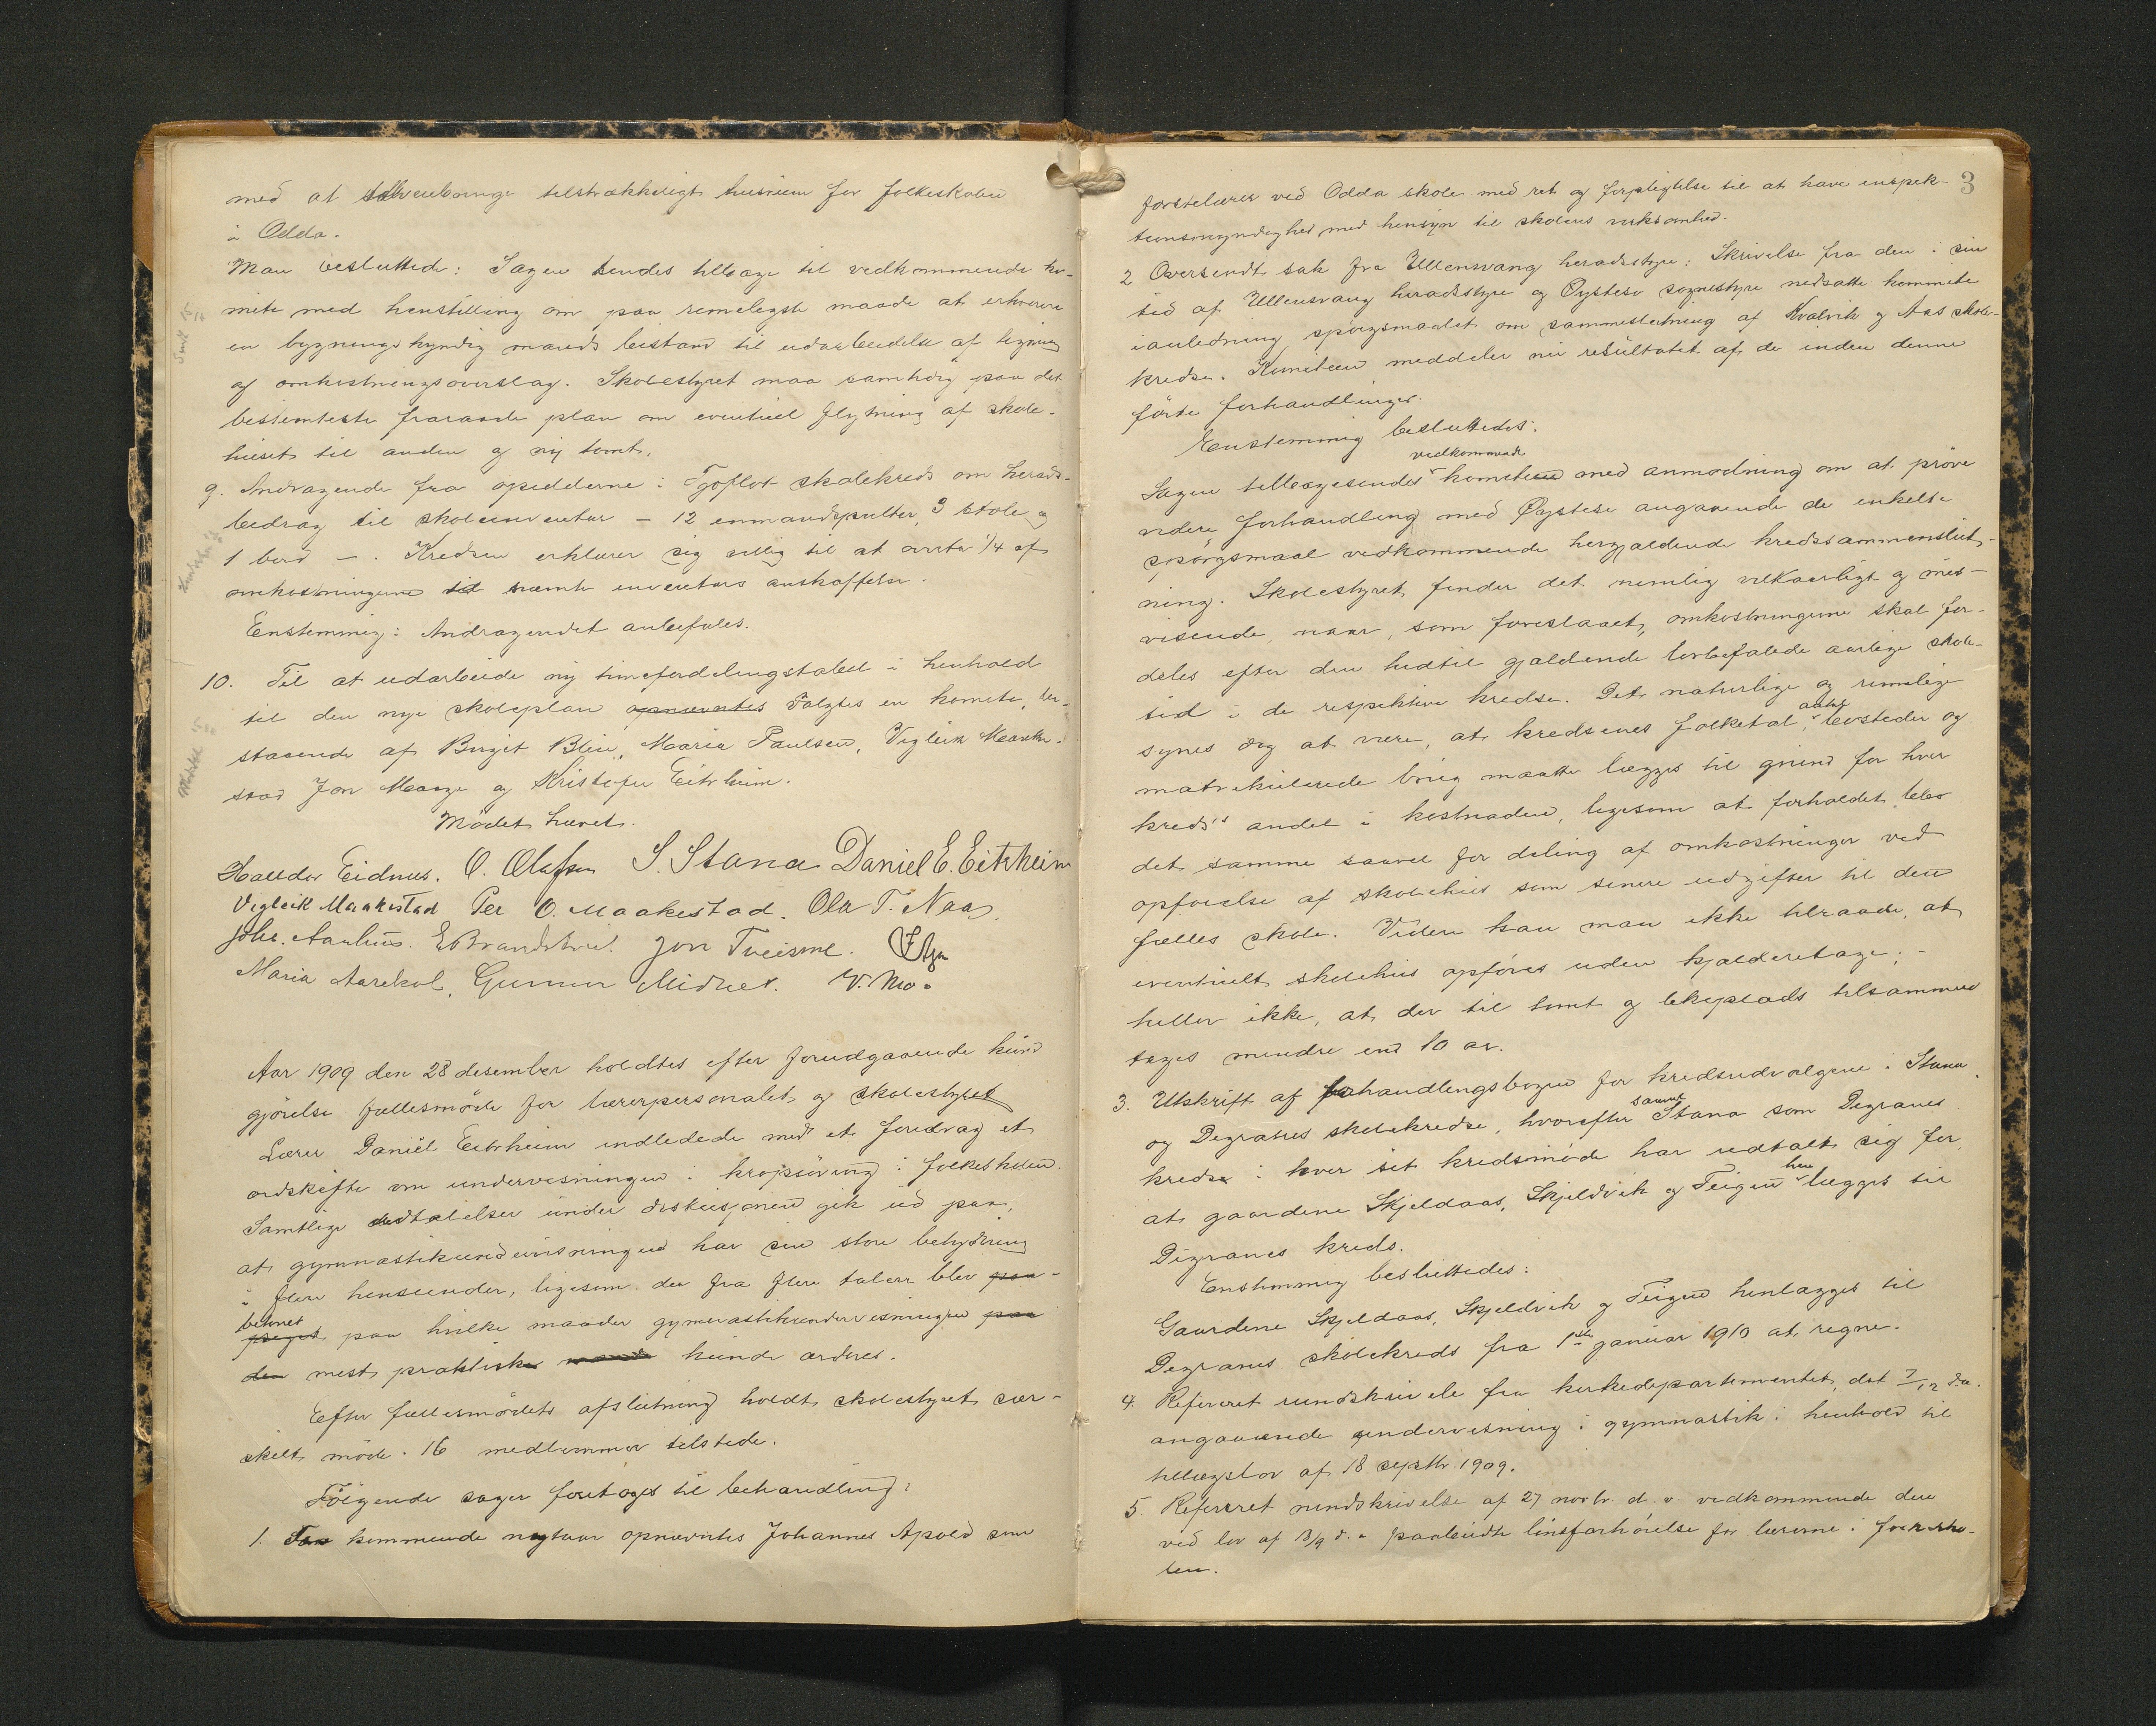 med at tilveiebringe tilstrækkeligt husrum for folkeskolen
i Odda.
Man besluttede: Sagen sendes tilbage til vedkommende ko-
mite med henstilling om paa rimeligste maade at erhverve
en bygningskyndig mands bistand til udarbeidelse af tegning
og omkostningsoverslag. Skolestyret maa samtidig paa det
bestemteste fraraade plan om eventuel flytning af skole-
huset til anden og ny tomt.
9. Andragende fra opsidderne i skolekreds om herads-
bidrag til skoleinventar – 12 enmandspulter, 3 stole og
1 bord –. Kredsen erklærer sig villig til at 1/4 af
omkostningerne til nævnte inventars anskaffelse.
Enstemmig: Andragendet anbefales.
10. Til at udarbeide ny timefordelingstabell i henhold
til den nye skoleplan opnævntes valgtes en komite, be-
staaende af Birgit Blie, Maria Paulsen, Vigleik Maake-
stad Jon Mauge og Kristofer Eitrheim.
Mødet hævet.
Halldor Eidnes. O. Olafsen S. Stana Daniel E. Eitrheim
Vigleik Maakestad Per O. Maakestad. Ola T. Naa.
Johs. Aarhus. E Brandstveit. Jon Tveisme.
Maria Aarekol, Gunnar Midnes. V. Mo.
Aar 1909 den 28 desember holdtes efter forudgaaende kund
gjørelse fællesmøde for lærerpersonalet og skolestyret
Lærer Daniel Eitrheim indledede med et foredrag et
ordskifte om undervisningen i kropsøving i folkeskolen.
Samtlige udtalelser under diskusjonen gik ud paa,
at gymnastikundervisningen har sin store betydning
i flere henseender, ligesom der fra flere talere blev paa-
betonet
peget paa hvilke maader gymnastikundervisningen paa
den mest praktiske maade kunde ordnes.
Efter fællesmødets afslutning holdt skolestyret sær-
skilt møde. 16 medlemmer tilstede.
Følgende sager foretoges til behandling:
1. For kommende nytaar opnævntes Johannes Apold som
3
førstelærer ved Odda skole med ret og forpligtelse til at have inspek-
tionsmyndighed med hensyn til skolens virksomhed.
2 Oversendt sak fra Ullensvang heradsstyre: Skrivelse fra den i sin
tid af Ullensvang heradsstyre og Øystesø sognestyre nedsatte kommite
i anledning spørgsmaalet om sammeslutning af Kvalvik og Aas skole-
kredse. Komiteen meddeler nu resultatet af de inden denne
førte forhandlinger.
Enstemmig besluttedes:
vedkommende
Sagen tilbagesendes komiteen med anmodning om at prøve
videre forhandling med Øystese angaaende de enkelte
spørgsmaal vedkommende hergjældende kredssammenslut-
ning. Skolestyret finder det nemlig vilkaarligt og mis-
visende, naar, som foreslaaet, omkostningerne skal for-
deles efter den hidtil gjældende lovbefalede aarlige skole-
tid i de respektive kredse. Det naturlige og rimelige
antal
synes dog at være, at kredsenes folketal, bosteder og
matrikulerede brug maatte lægges til grund for hver
kreds's andel i kostnaden, ligesom at forholdet blev
det samme saavel for deling af omkostninger ved
opførelse af skolehus som senere udgifter til den
fælles skole. Videre kan man ikke tilraade, at
eventuelt skolehus opføres uden kjælderetage; –
heller ikke, at der til tomt og lekeplads tilsammen
tages mindre end 10 ar.
3. Utskrift af forhandlingsbogen for kredsudvalgene i Stana
samt
og Digranes skolekredse, hvorefter Stana som Digranes
kredse i hver sit kredsmøde har udtalt sig for,
hen
at gaardene Skjeldaas, Skjeldvik og Teigen lægges til
Digranes kreds.
Enstemmig besluttedes:
Gaardene Skjeldaas, Skjeldvik og Teigen henlægges til
Digranes skolekreds fra 1ste januar 1910 at regne.
4. Referert rundskrivele fra kirkedepartementet, dat 7/12 d.a.
angaaende undervisning i gymnastik i henhold til
tillægslov af 18 septbr. 1909.
5. Referert rundskrivelse af 27 novbr. d. a. vedkommende den
ved lov af 18/9 d. a. paabudte livsforsørgelse for lærerne i folkesko-
len.